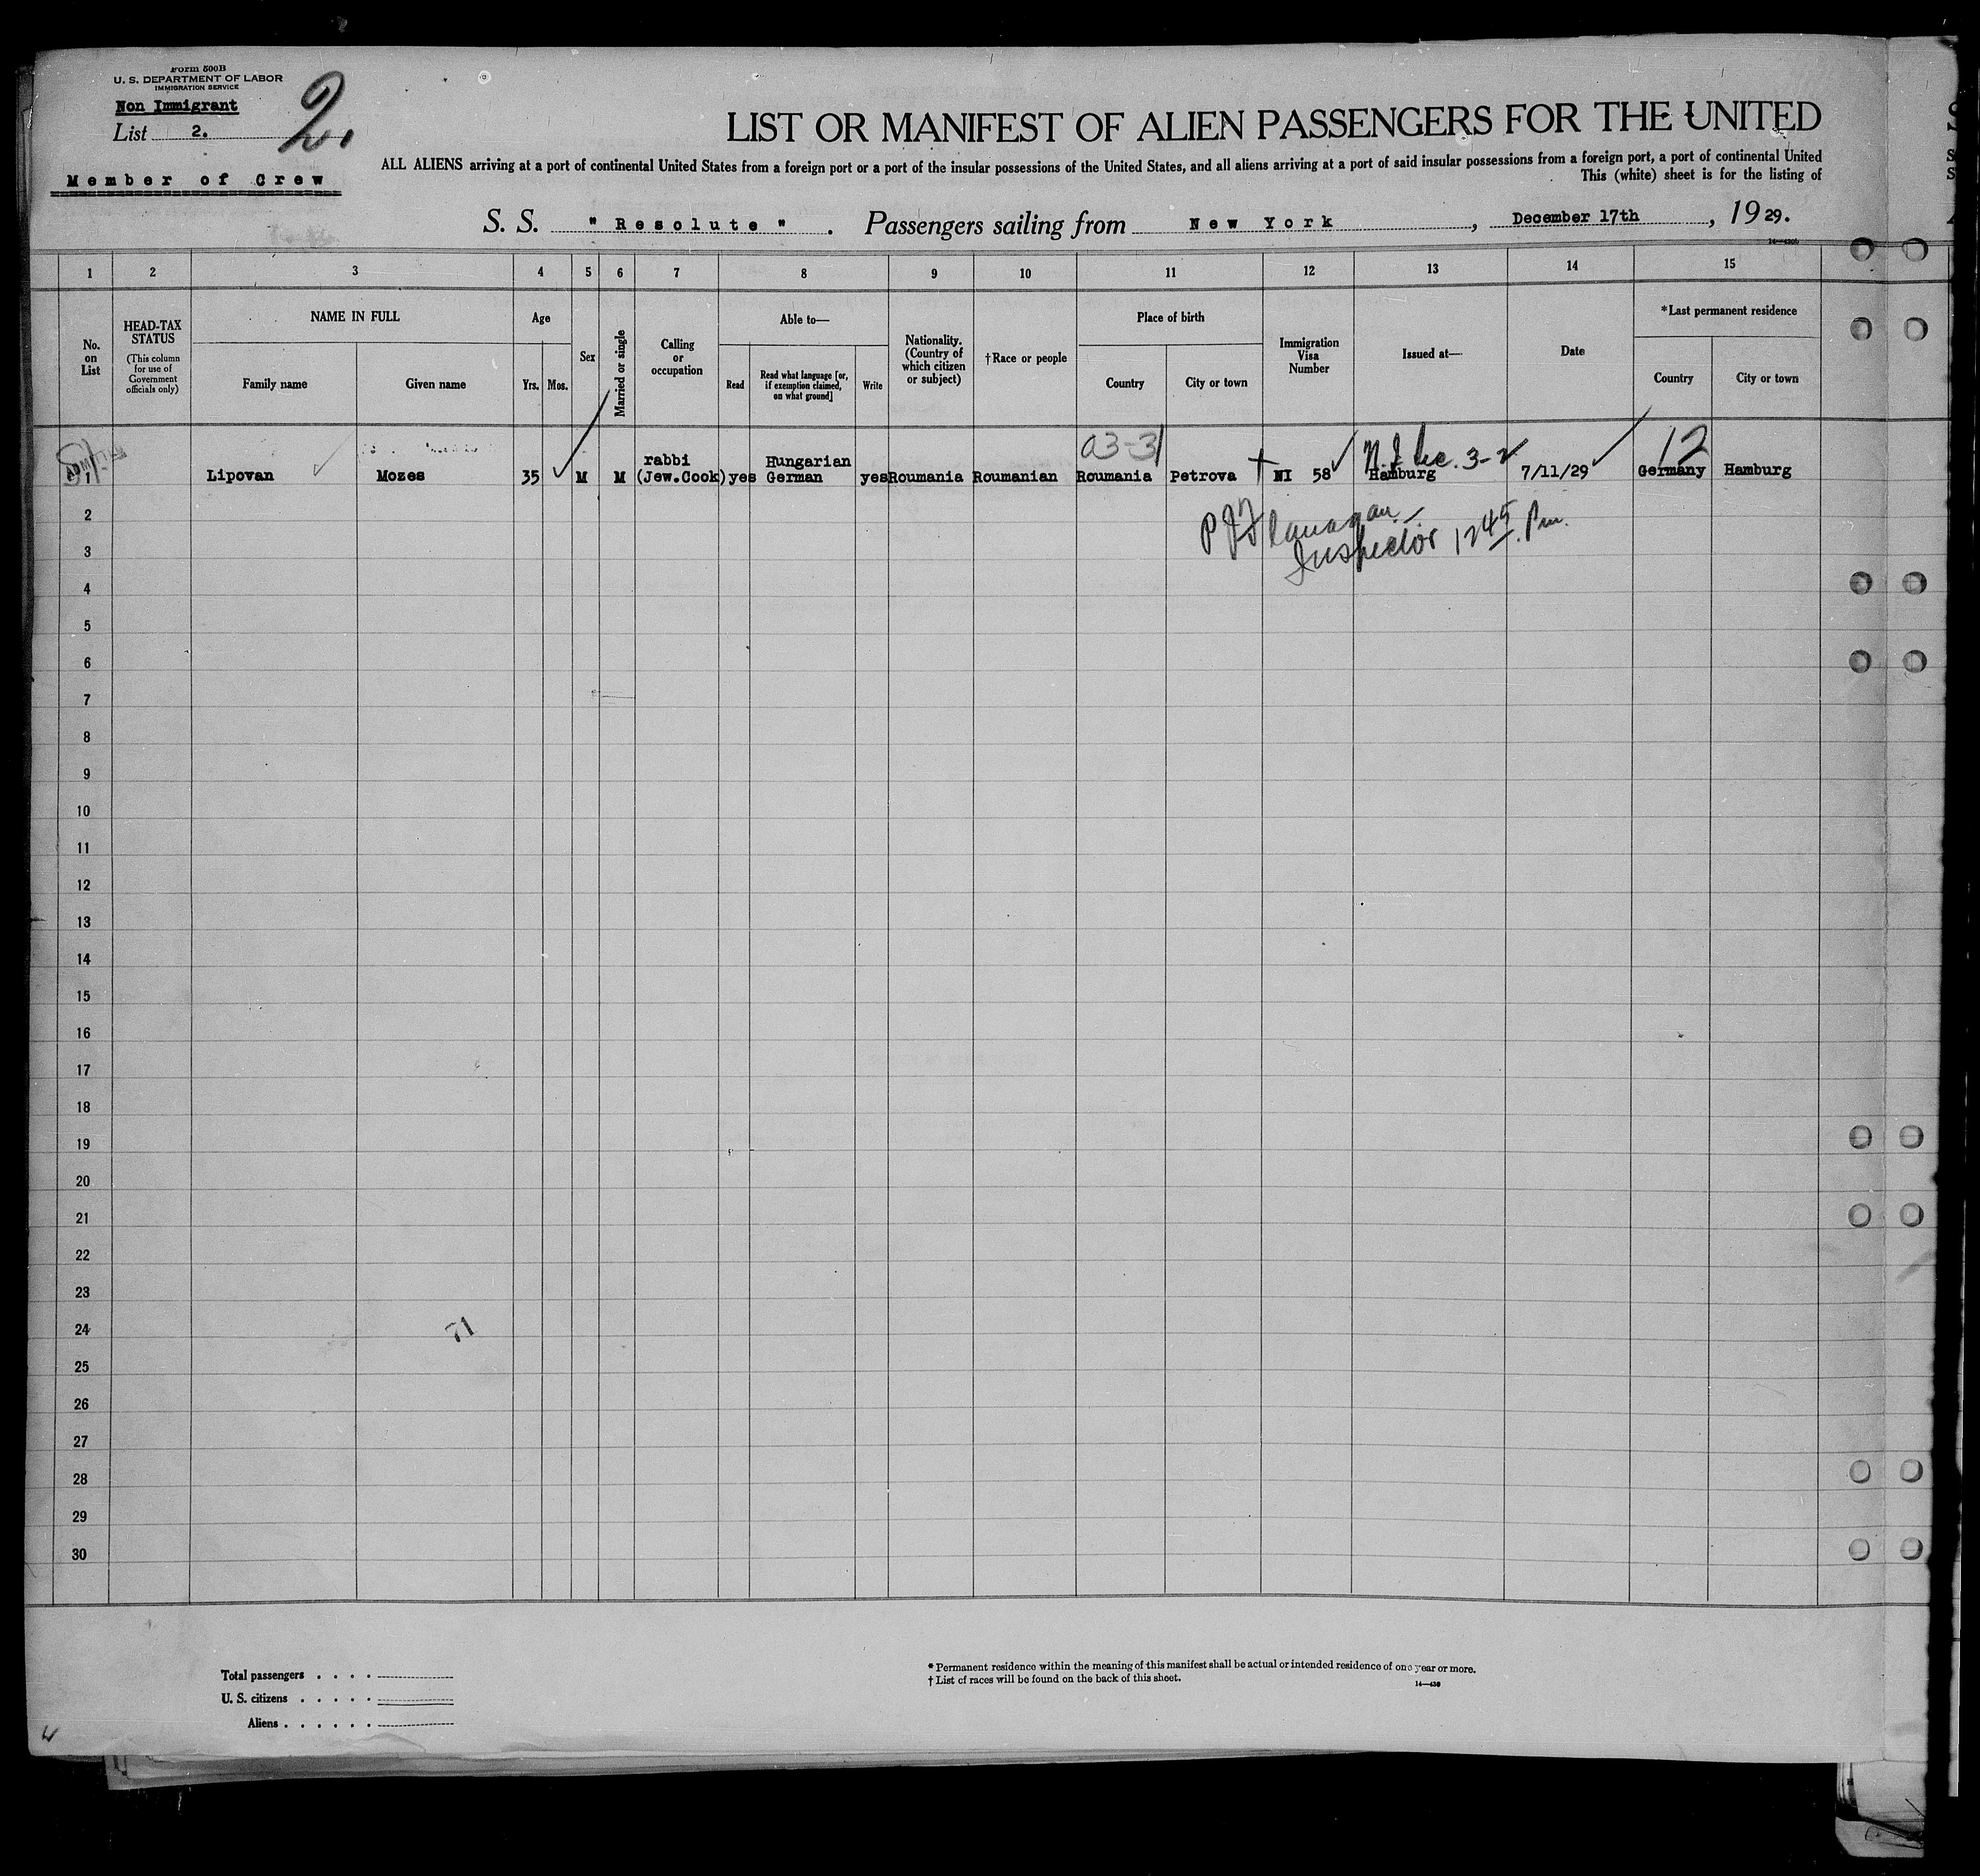 Form 500B
U. S. DEPARTMENT OF LABOR
IMMIGRATION SERVICE
Non Immigrant
List 2.
2.
Member of Crew
LIST OR MANIFEST OF ALIEN PASSENGERS FOR THE UNITED
ALL ALIENS arriving at a port of continental United States from a foreign port or a port of the insular possessions of the United States, and all aliens arriving at a port of said insular possessions from a foreign port, a port of continental United
This (white) sheet is for the listing of
S. S. " Resolute " . Passengers sailing from New York , December 17th , 19 29.
1 2 3 4 5 6 7 8 9 10 11 12 13 14 15
No. on List
HEAD-TAX STATUS
(This column for use of Government officials only)
NAME IN FULL
Family name Given name
Age
Yrs. Mos.
Sex
Married or single
Calling or occupation
Able to—
Read
Read what language [or, if exemption claimed, on what ground]
Write
Nationality. (Country of which citizen or subject)
†Race or people
Place of birth
Country City or town
Immigration Visa Number
Issued at—
Date
*Last permanent residence
Country City or town
03-31 3-2 12
ADMITTED
1 Lipovan Mozes 35 M M rabbi (Jew.Cook) yes Hungarian German yes Roumania Roumanian Roumania Petrova NI 58 Hamburg 7/11/29 Germany Hamburg
P J Flanagan
Inspector 12 45 Pm.
2
3
4
5
6
7
8
9
10
11
12
13
14
15
16
17
18
19
20
21
22
23
24
71
25
26
27
28
29
30
Total passengers . . . .
U. S. citizens . . . . .
Aliens . . . . . .
* Permanent residence within the meaning of this manifest shall be actual or intended residence of one year or more.
† List of races will be found on the back of this sheet.
14—430